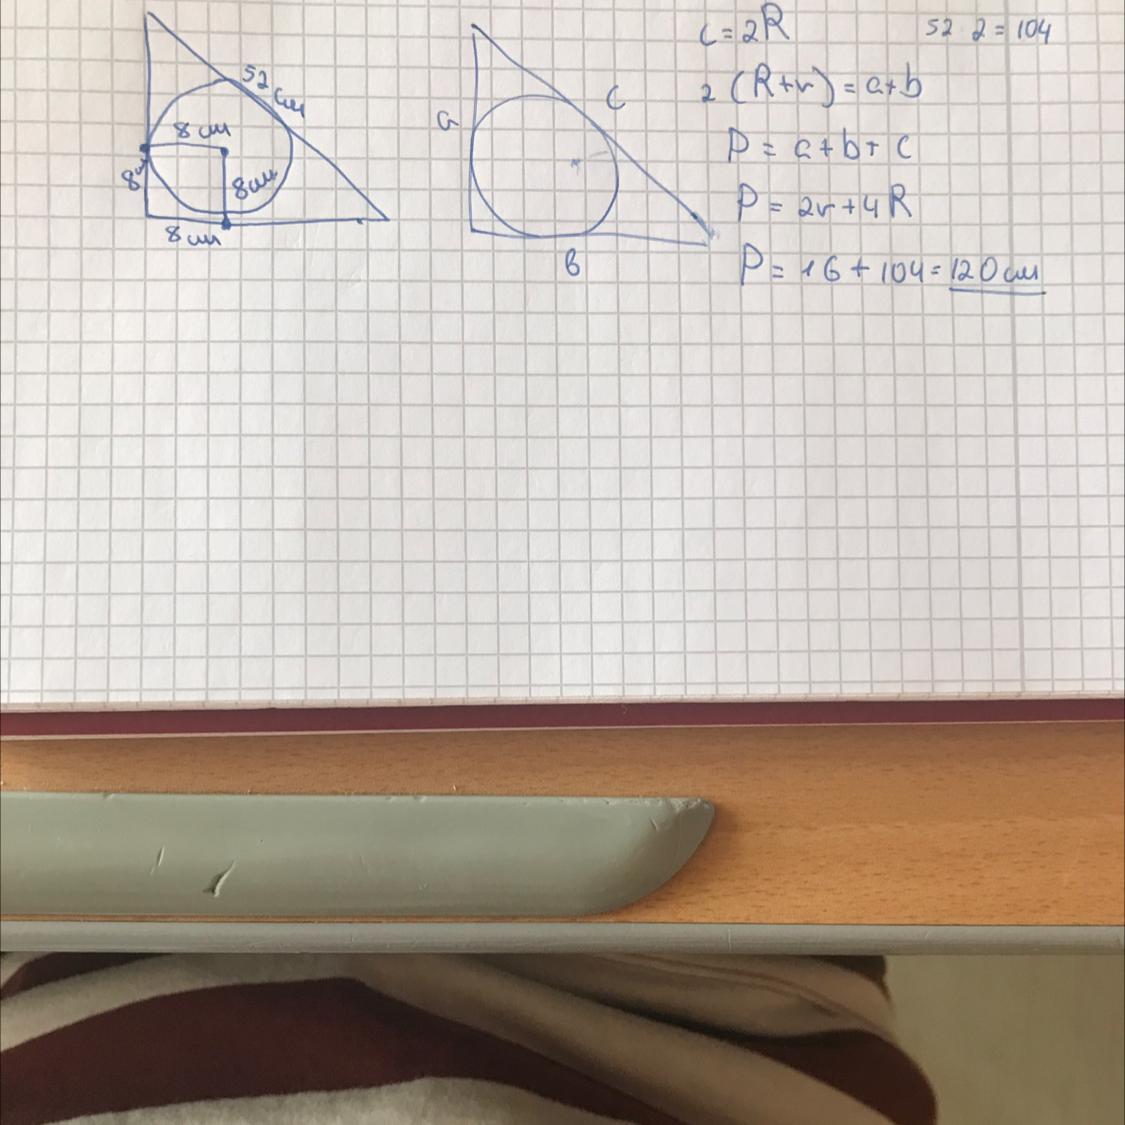 52 см
8 см
8
8 см
8 см
a
c
b
c = 2R
52 · 2 = 104
2 (R+r) = a+b
P = a + b + c
P = 2r + 4R
P = 16 + 104 = 120 см